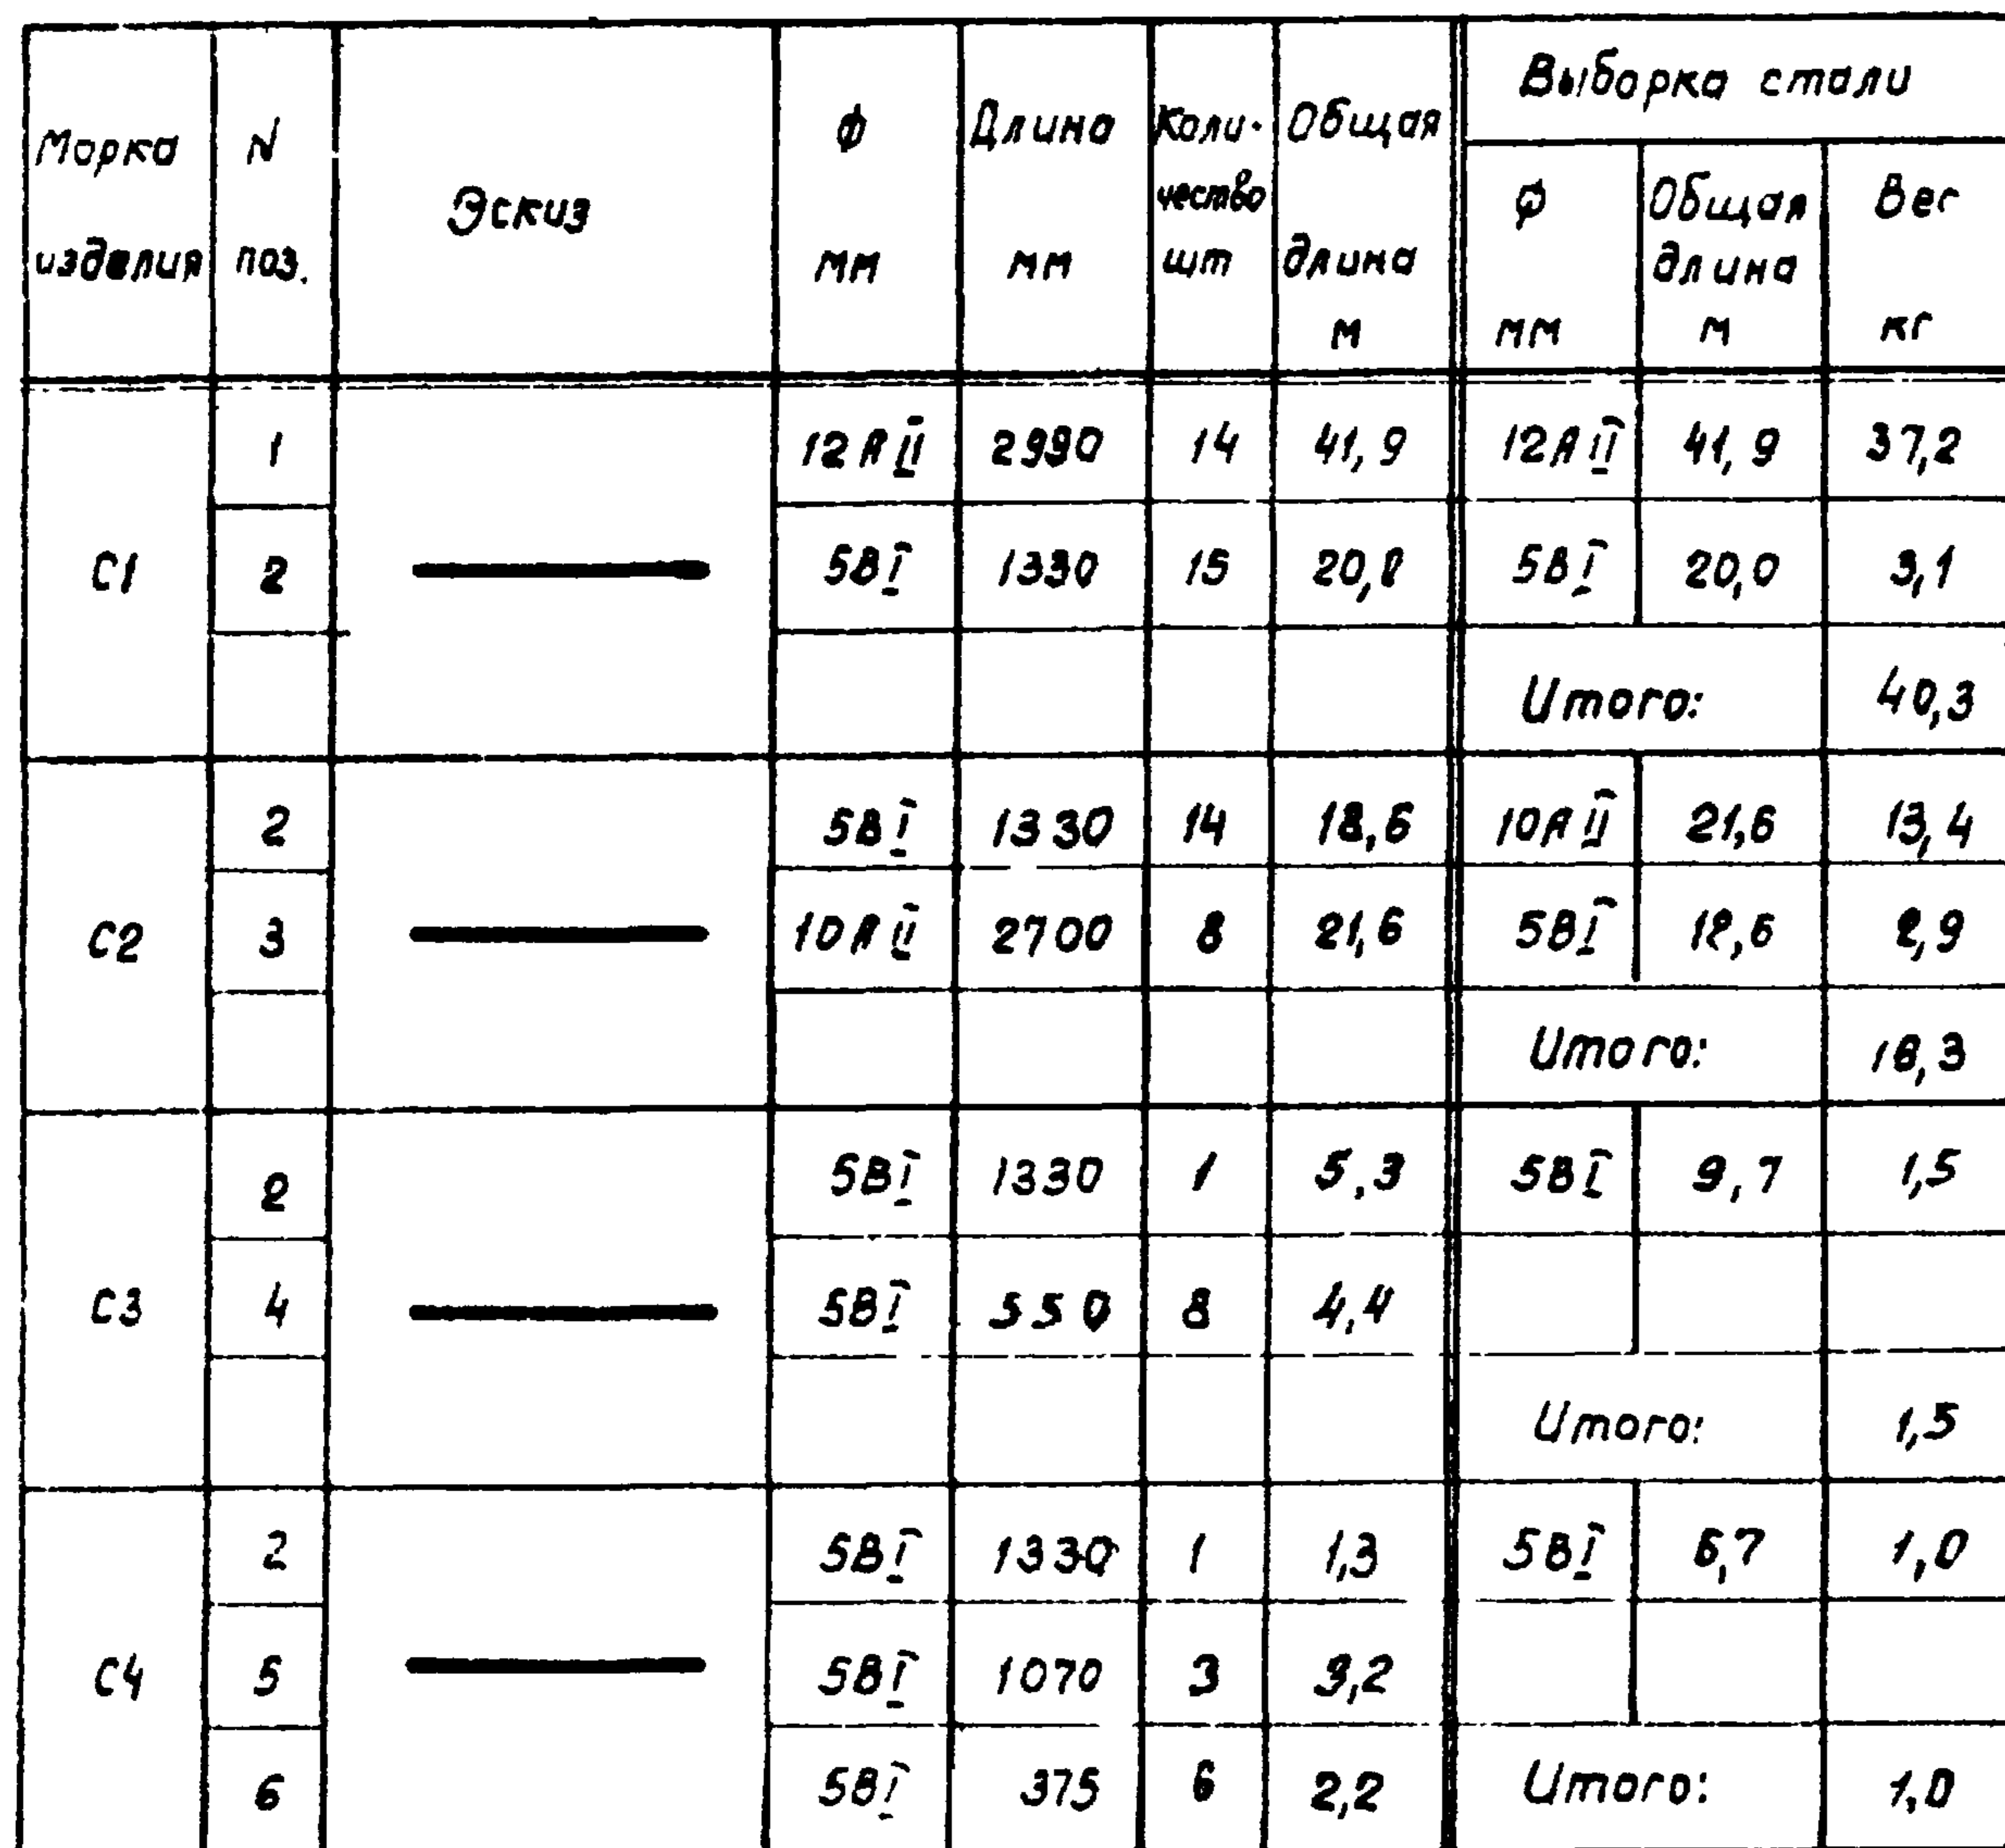 Марка изделия | N поз. | Эскиз | Ф мм | Длина мм | Коли-чество шт | Общая длина м | Выборка стали
Ф мм | Общая длина м | Вес кг
С1 | 1 | 12АII | 2990 | 14 | 41,9 | 12АII | 41,9 | 37,2
2 | 5ВI | 1330 | 15 | 20,0 | 5ВI | 20,0 | 3,1
Итого: | 40,3
С2 | 2 | 5ВI | 1330 | 14 | 18,6 | 10АII | 21,6 | 13,4
3 | 10АII | 2700 | 8 | 21,6 | 5ВI | 18,6 | 2,9
Итого: | 16,3
С3 | 2 | 5ВI | 1330 | 1 | 5,3 | 5ВI | 9,7 | 1,5
4 | 5ВI | 550 | 8 | 4,4
Итого: | 1,5
С4 | 2 | 5ВI | 1330 | 1 | 1,3 | 5ВI | 6,7 | 1,0
5 | 5ВI | 1070 | 3 | 3,2
6 | 5ВI | 375 | 6 | 2,2 | Итого: | 1,0